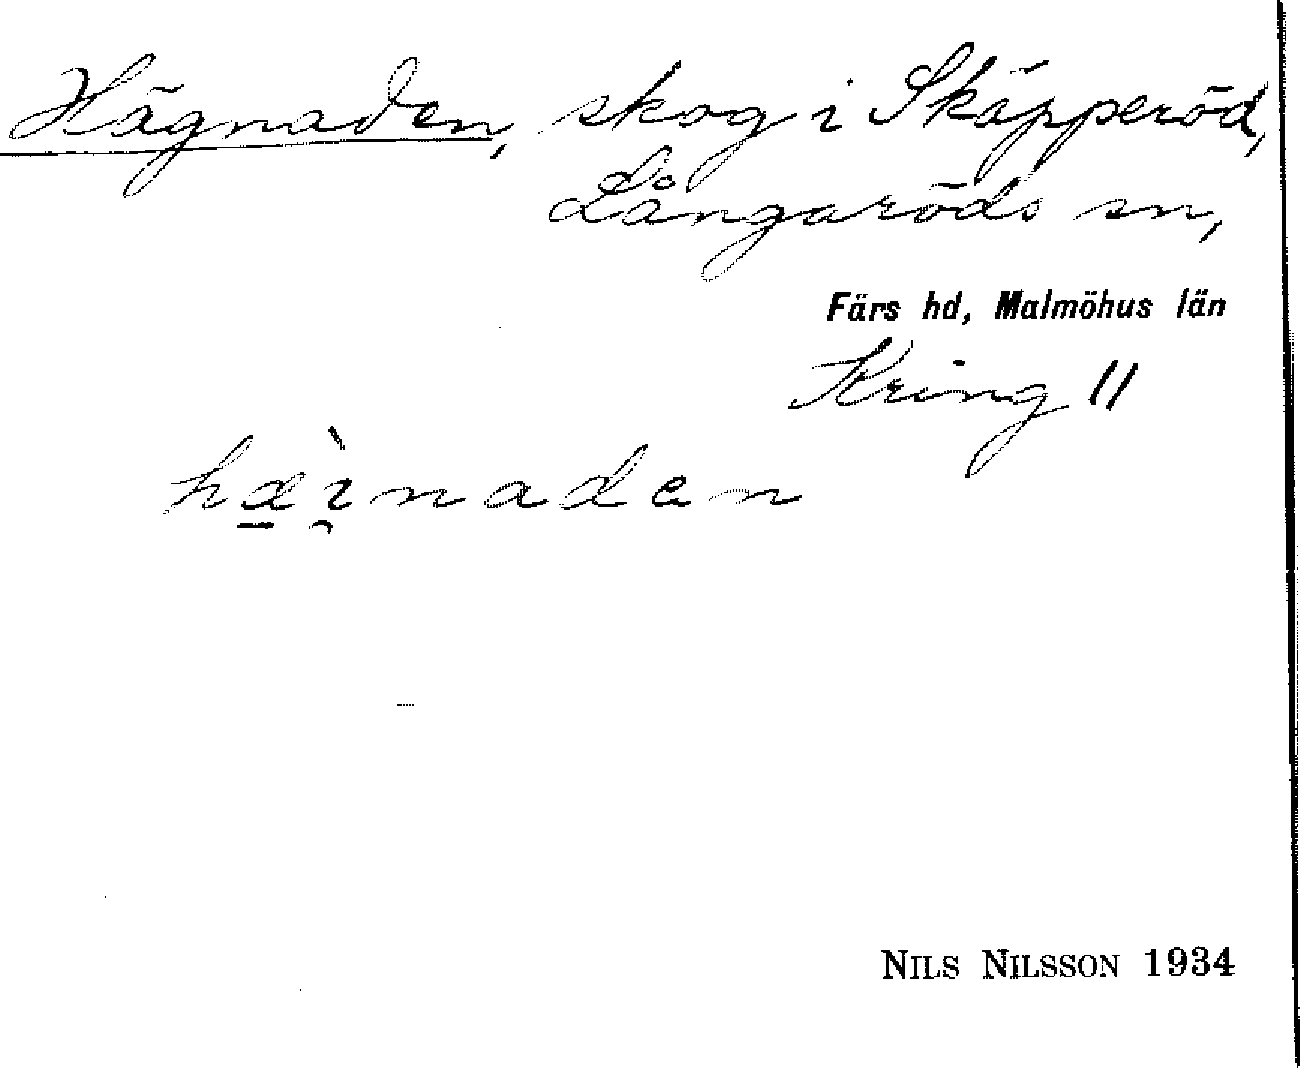 Hägnaden, skog i Skäpperöd,
Långaröds sn,
Färs hd, Malmöhus län
Kring 11
hæ̱ì̯naden
NILS NILSSON 1934